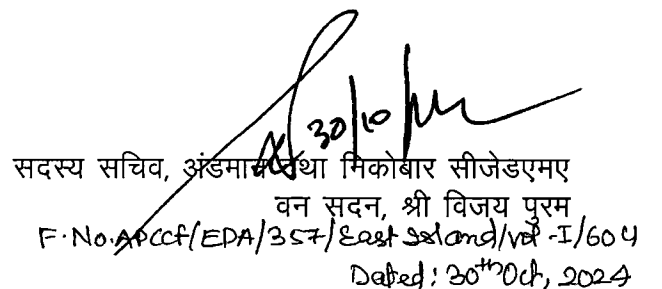 30/10/24
सदस्य सचिव, अंडमान तथा निकोबार सीजेडएमए
वन सदन, श्री विजय पुरम
F.No.APCCF/EPA/357/East Island/vol-I/604
Dated: 30th Oct, 2024